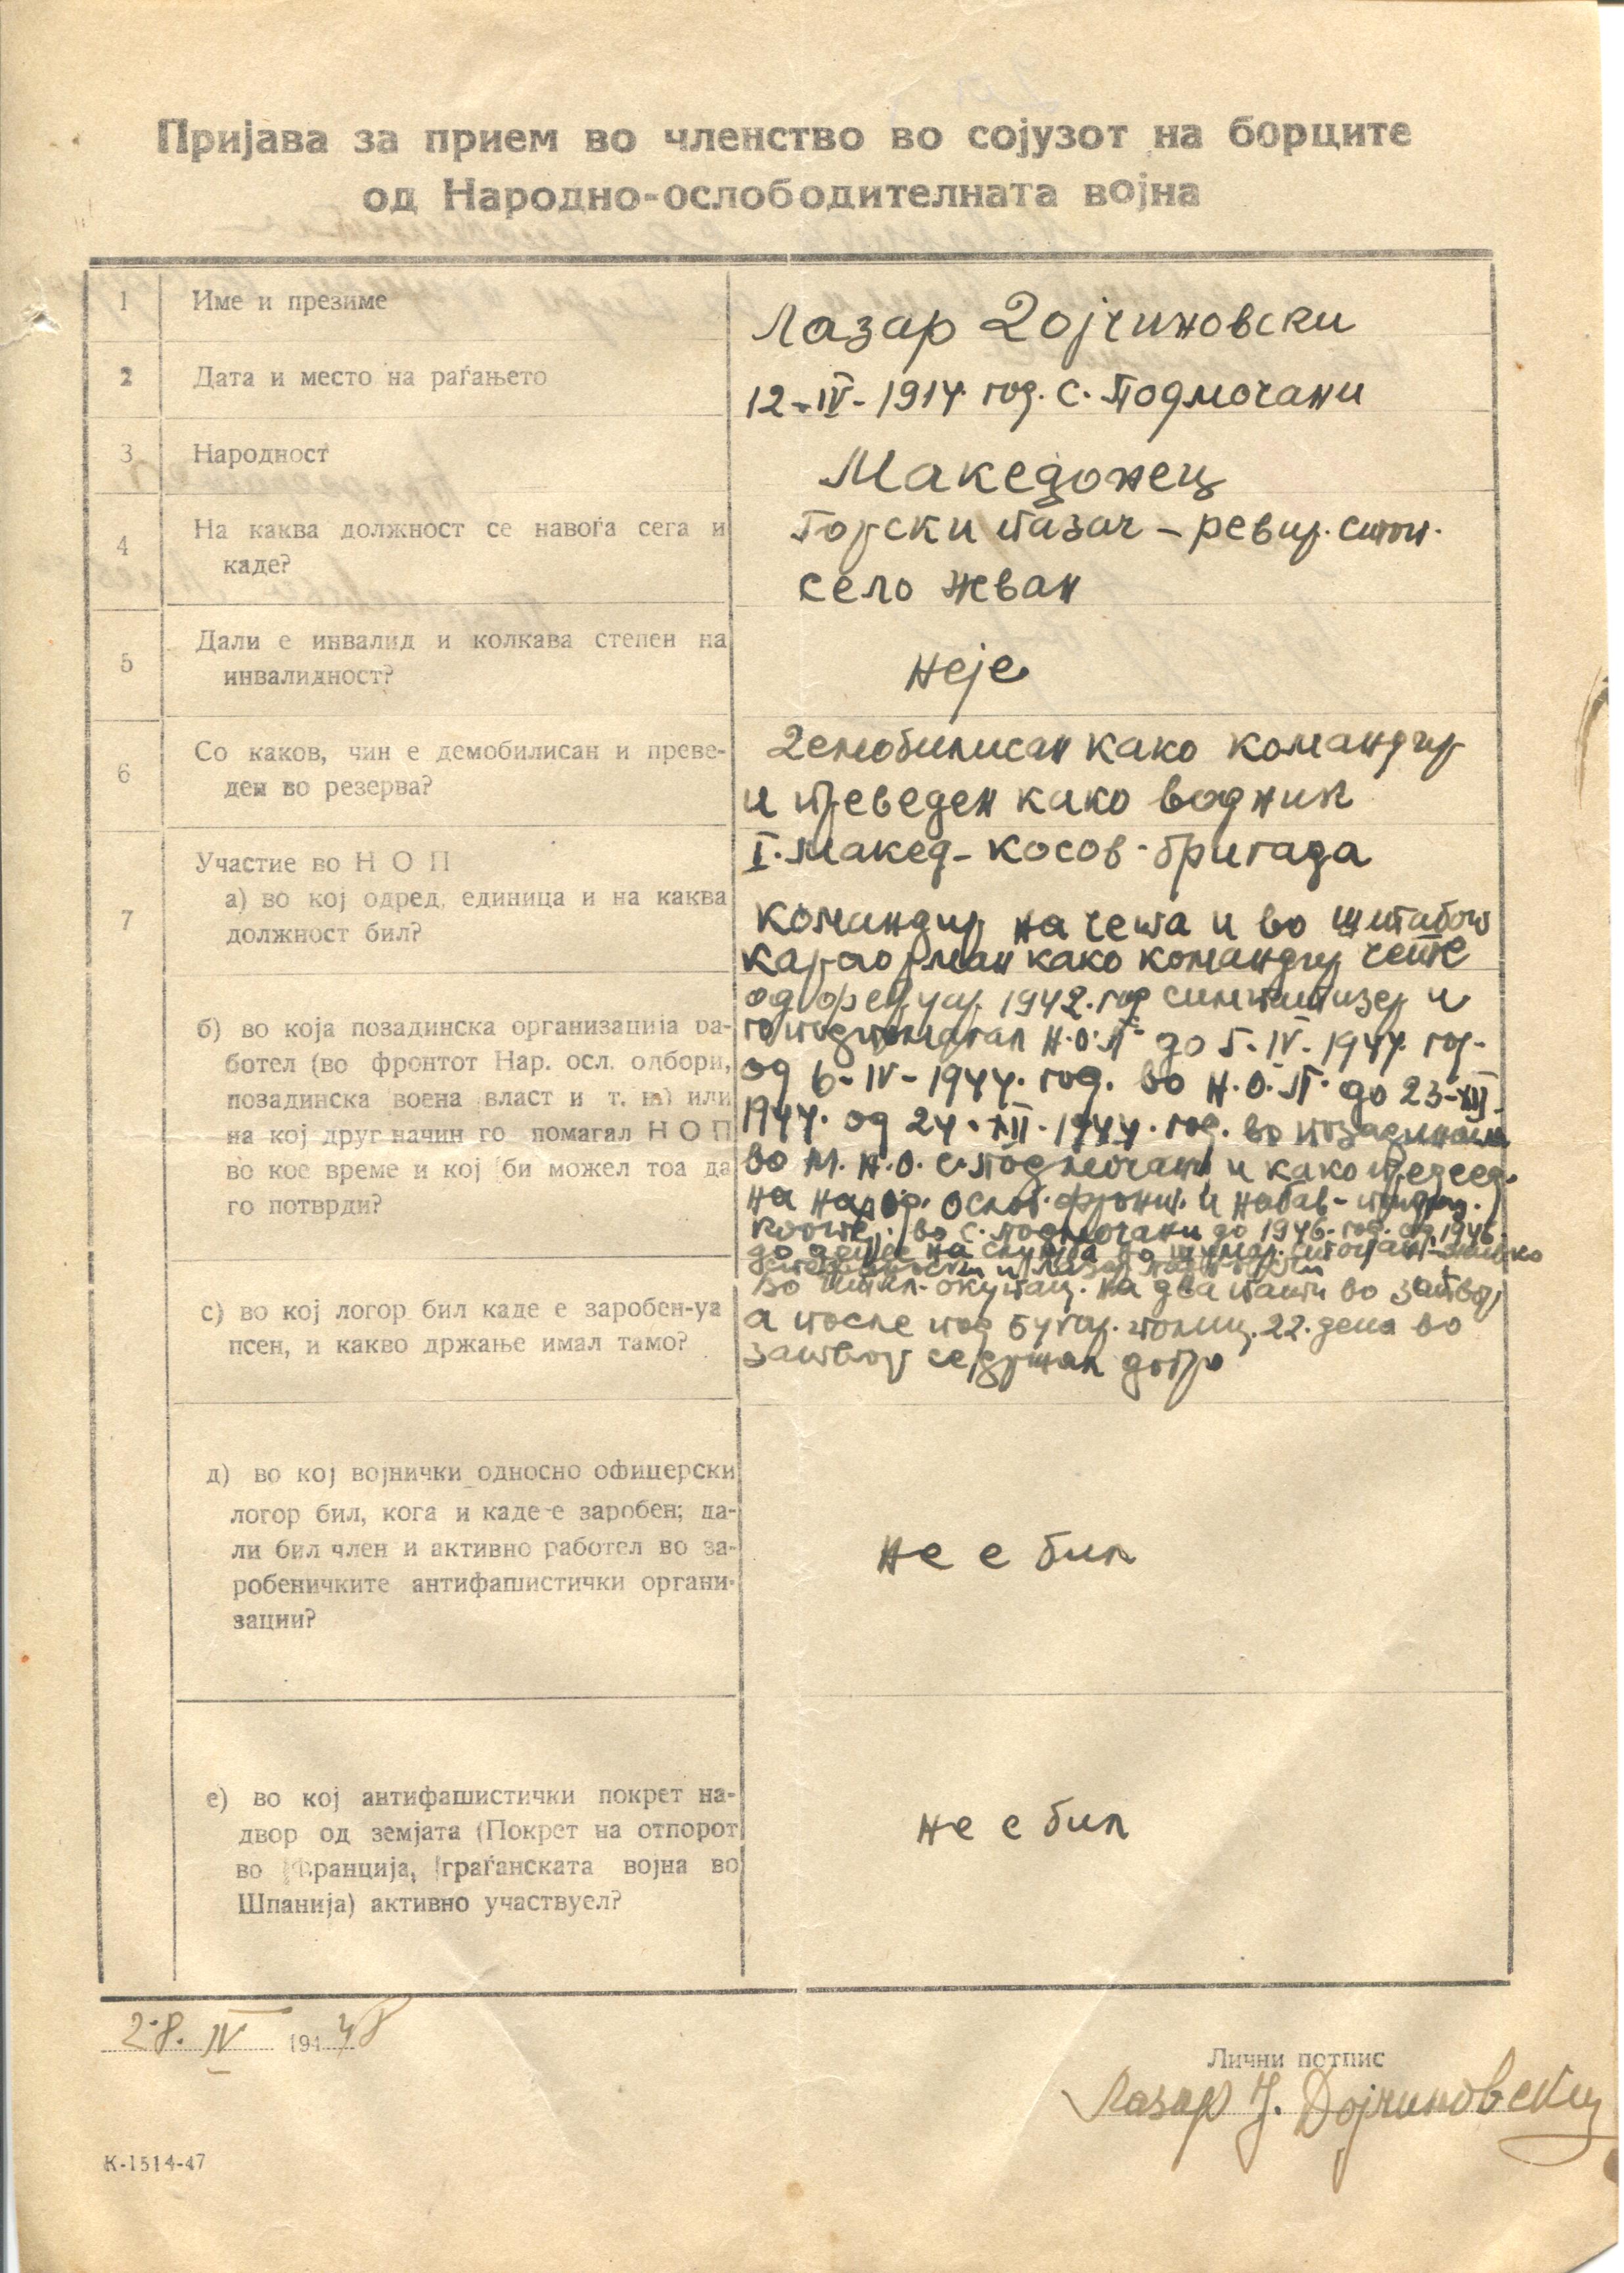 Пријава за прием во членство во сојузот на борците
од Народно-ослободителната војна
1 Име и презиме
Лазар Дојчиновски
2 Дата и место на раѓањето
12-IV-1914. год. с. Подмочани
3 Народност
Македонец
4 На каква должност се навоѓа сега и
каде?
Горски пазач - ревир.
село Жван
5 Дали е инвалид и колкава степен на
инвалидност?
неје
6 Со каков, чин е демобилисан и преве-
ден во резерва?
Демобилисан како командир
и преведен како водник
7 Участие во Н О П
а) во кој одред, единица и на каква
должност бил?
I. Макед- косов- бригада
командир на чета и во штабот
караорман како командир чете
б) во која позадинска организација ра-
ботел (во фронтот Нар. осл. одбори,
позадинска воена власт и т. н.) или
на кој друг начин го помагал Н О П
во кое време и кој би можел тоа да
го потврди?
од 1942. год симпатизер и
го подпомагал Н.О.П. до 5-IV-1944. год.
од 6-IV-1944. год. во Н.О.П. до 23-XII-
1944. од 24-XII-1944. год. во позадината
во М.Н.О. с. Подмочани и како председ.
на народ. ослоб. фронт. и набав-
во с. Подмочани до 1946. год. од 1946
до денес на служба
с) во кој логор бил каде е заробен-уа
псен, и какво држање имал тамо?
во окупац. на два пати во затвор
а после под бугар. полиц. 22. дена во
затвор се држал добро
д) во кој војнички односно офицерски
логор бил, кога и каде е заробен; да-
ли бил член и активно работел во за-
робеничките антифашистички органи-
зации?
не е бил
е) во кој антифашистички покрет на-
двор од земјата (Покрет на отпорот
во Франција, граѓанската војна во
Шпанија) активно участвуел?
не е бил
28. IV 1948
Лични потпис
Лазар Ј. Дојчиновски
К-1514-47